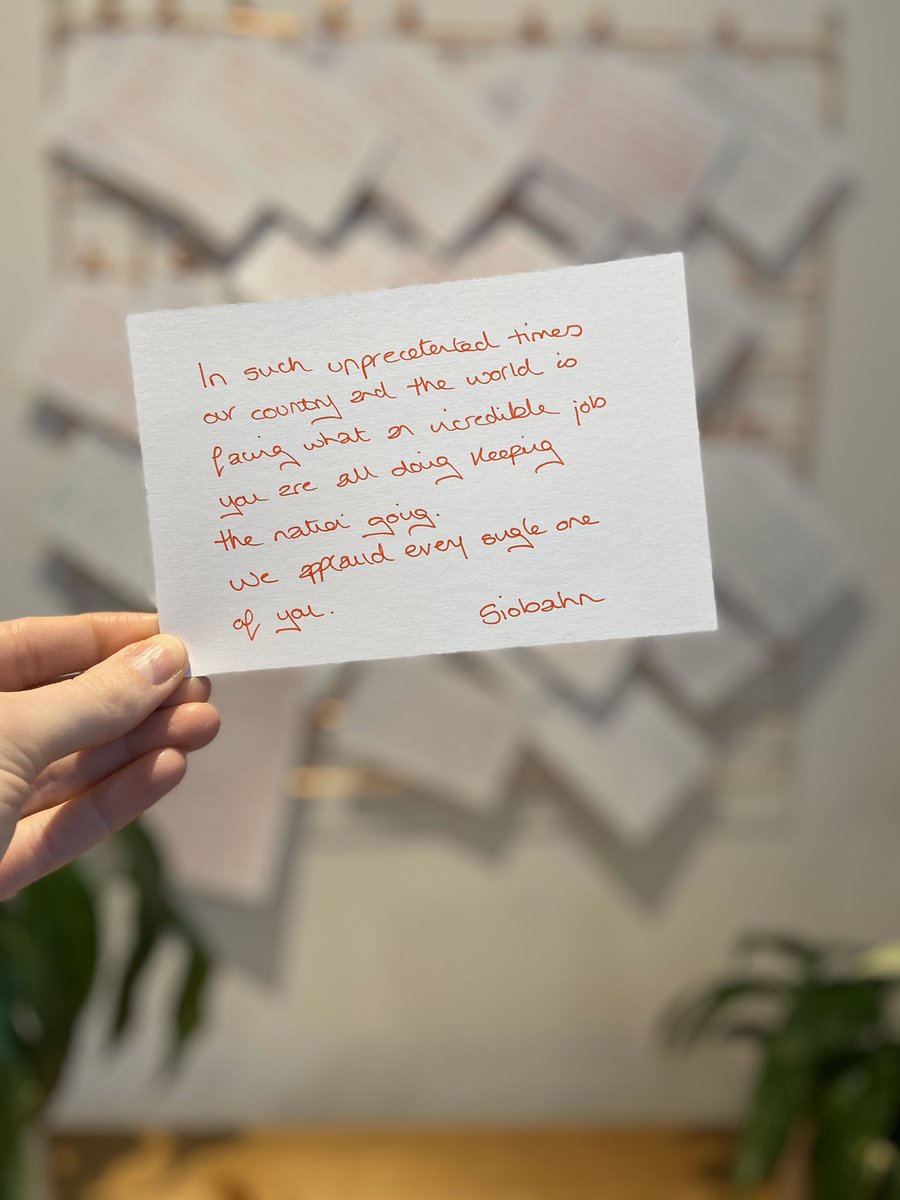 In such unprecetented times
our country and the world is
facing what an incredible job
you are all doing keeping
the nation going.
We applaud every single one
of you.
Siobahn